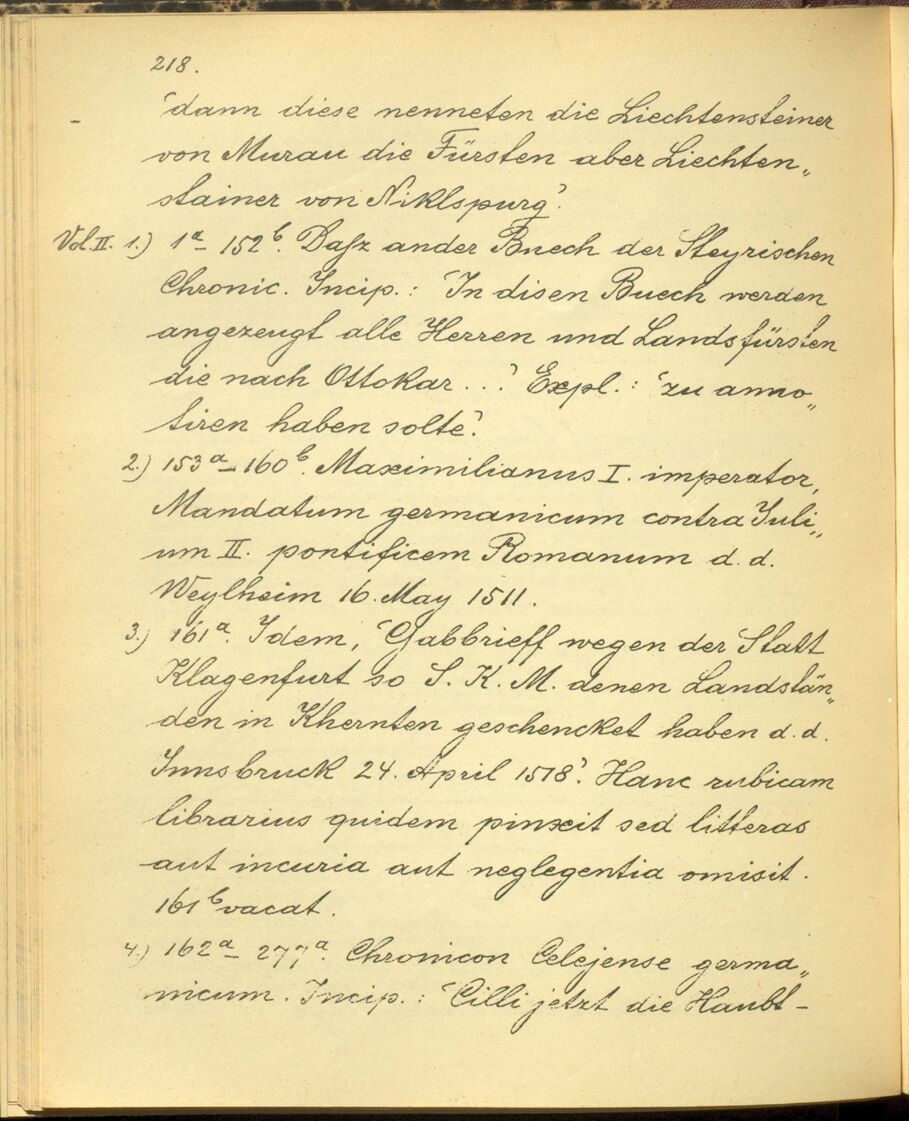 218.
'dann diese nenneten die Liechtensteiner
von Murau die Fürsten aber Liechten„
stainer von Niklspurg'.
Vol. II. 1.) 1ᵃ– 152ᵇ. Dasz ander Buech der Steyrischen
Chronic. Incip.: 'In disen Buech werden
angezeugt alle Herren und Landsfürsten
die nach Ottokar...' Expl.: 'zu anno„
tiren haben solte'.
2.) 153ᵃ–160ᵇ. Maximilianus I. imperator,
Mandatum germanicum contra Juli„
um II. pontificem Romanum d. d.
Weylheim 16. May 1511.
3.) 161ᵃ. Idem, 'Gabbrieff wegen der Statt
Klagenfurt so S. K. M. denen Landstän„
den in Khernten geschencket haben d. d.
Innsbruck 24. April 1518'. Hanc rubicam
librarius quidem pinxit sed litteras
aut incuria aut neglegentia omisit.
161ᵇ vacat.
4.) 162ᵃ– 277ᵃ. Chronicon Celejense germa„
nicum. Incip.: 'Cilli jetzt die Haubt-